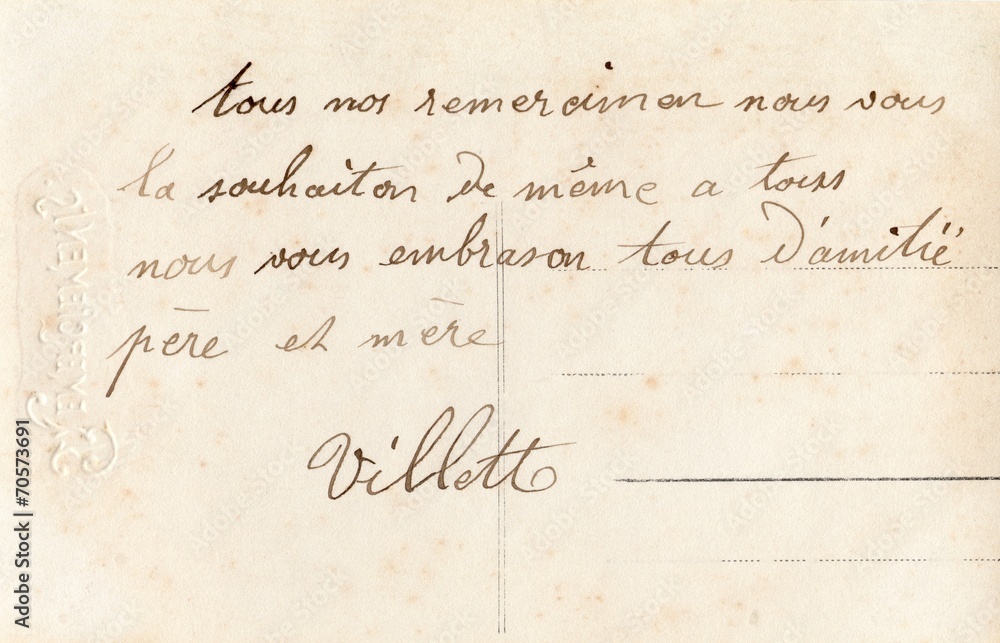 tous nos remercimen nous vous
la souhaiton de même a touss
nous vous embrason tous d'amitié
père et mère
Villette
Adobe Stock | #70573691